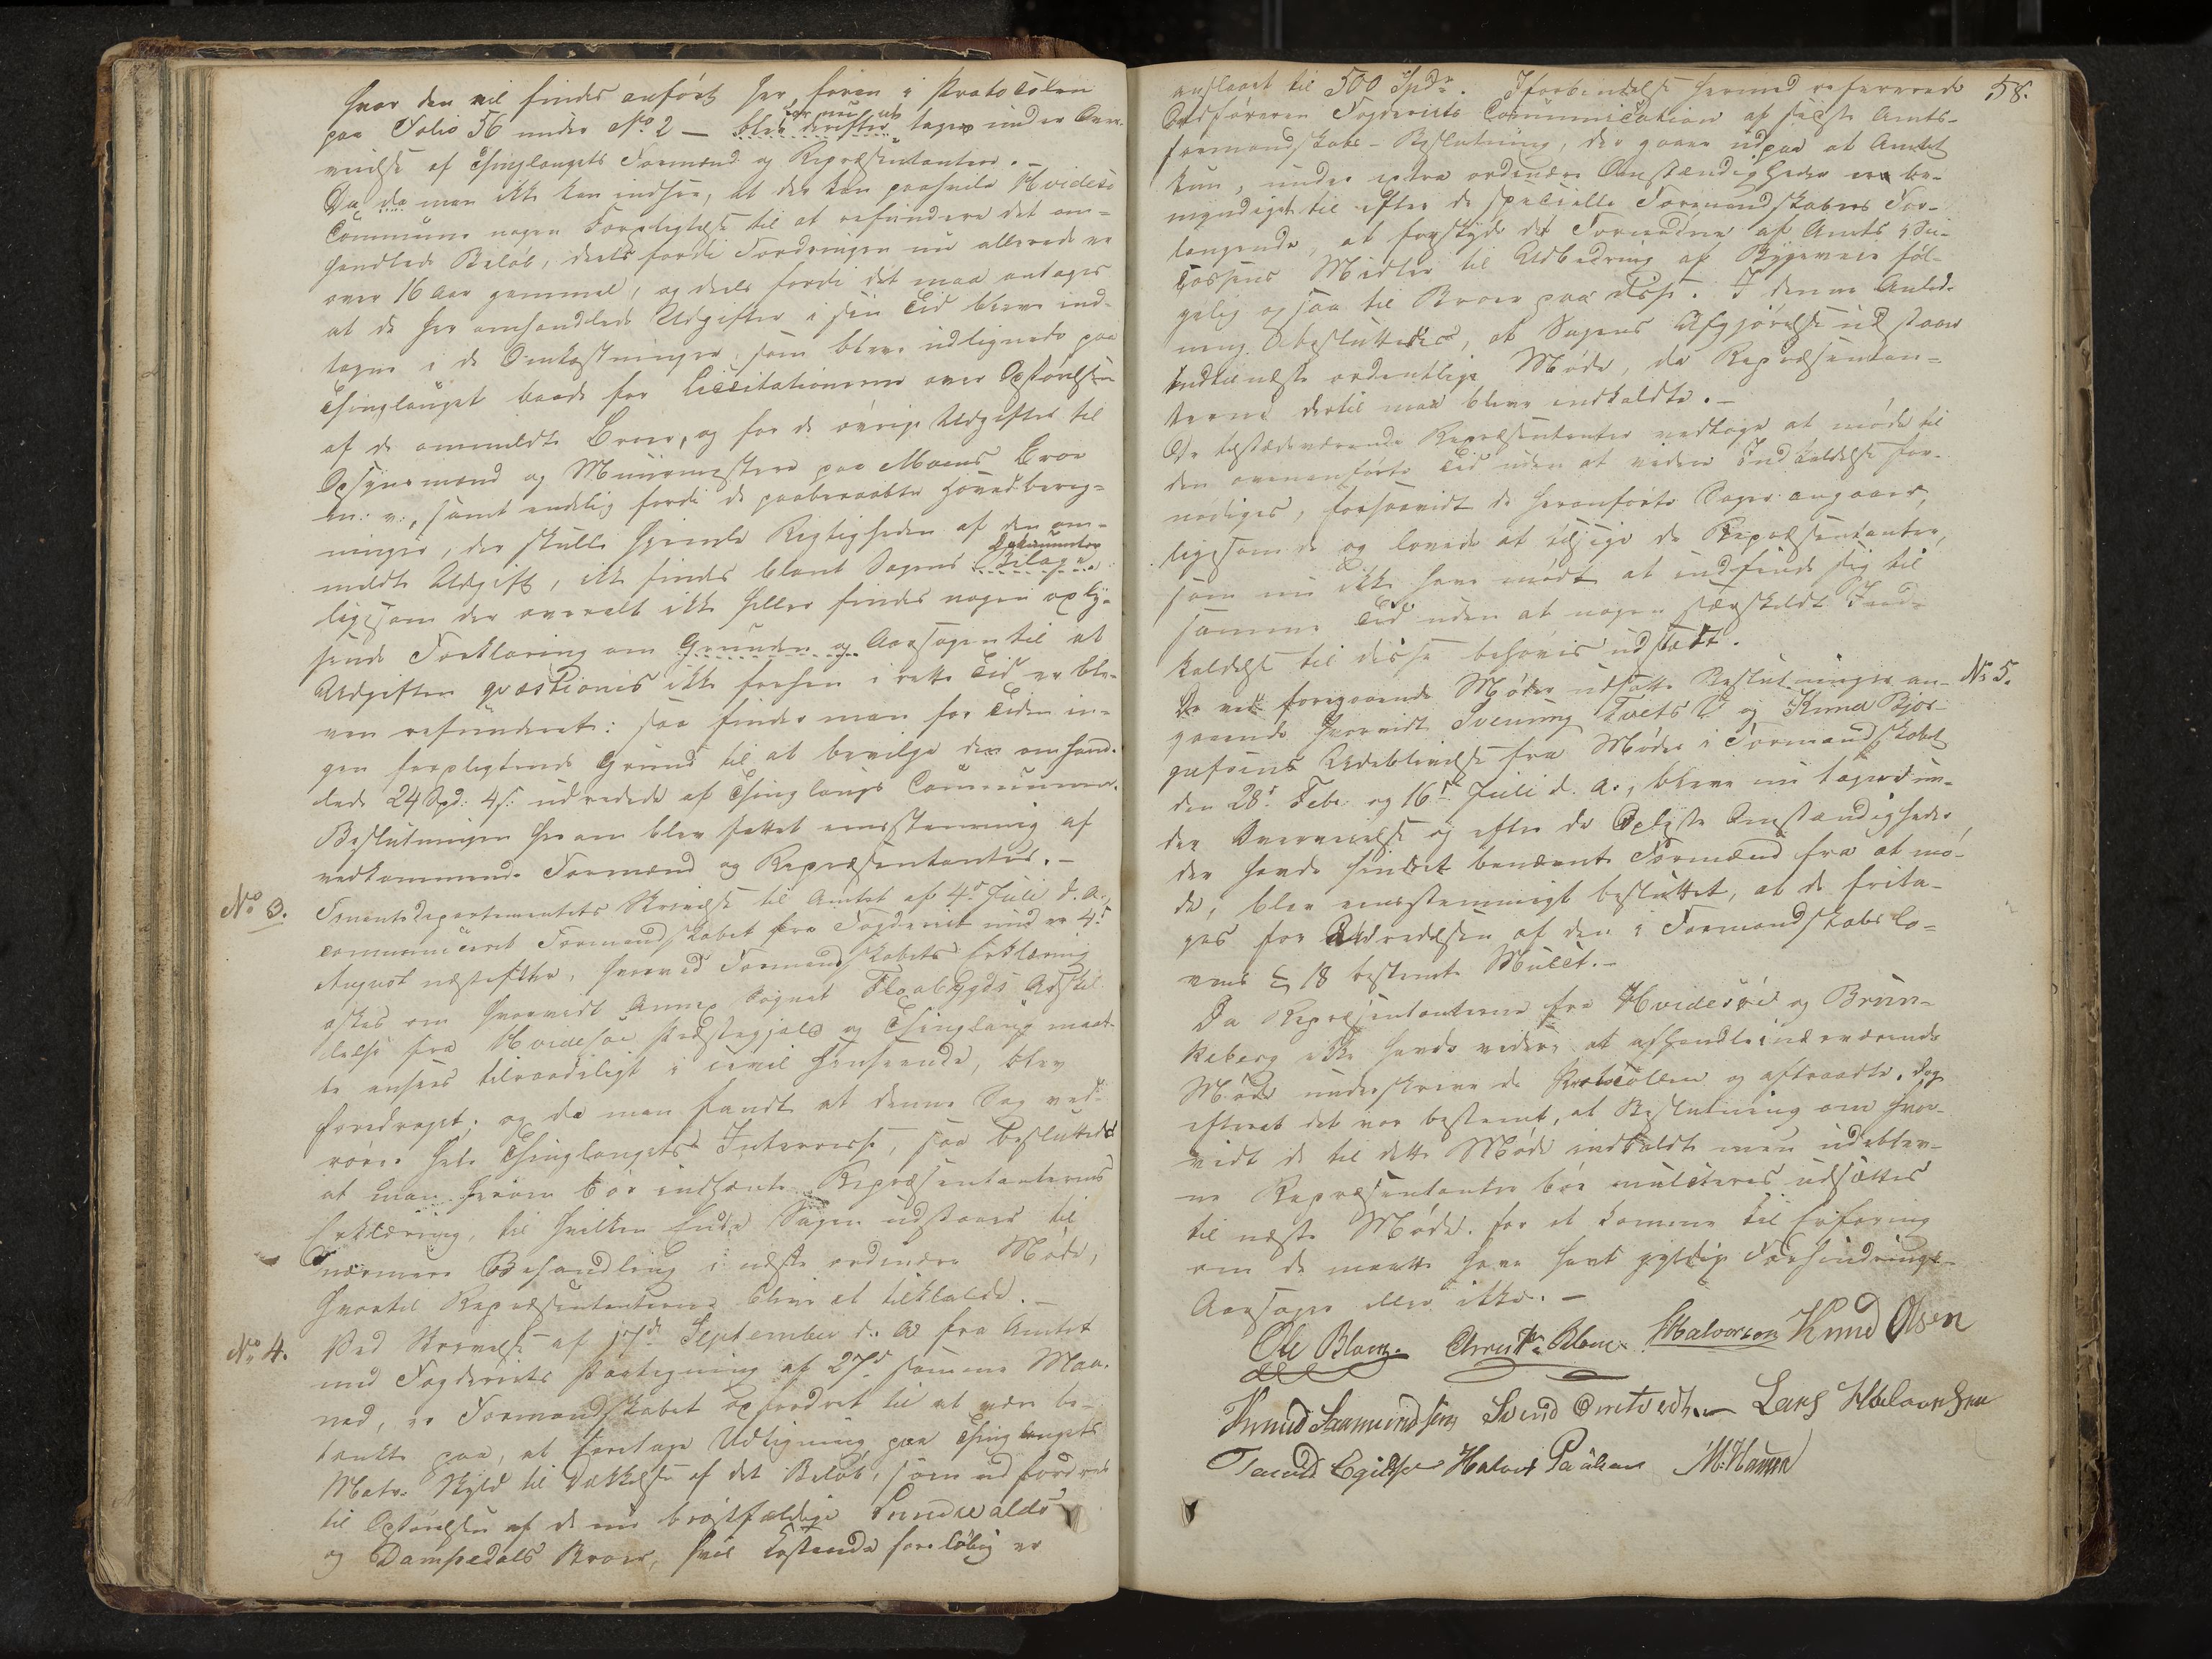 hvor den vil findes anført her foran i Protocolen
paa Folio 56 under No 2 — blev derefter tagen under Over-
veielse af Thinglaugets Formænd og Repræsentanter. —
Da da man ikke kan indsee, at der kan paahvile Hvidesø
Commune nogen Forpligtelse til at refundere det om-
handlede Beløb, deels fordi Fordringen nu allerede er
over 16 Aar gammel, og deels fordi det maa antages
at de her omhandlede Udgifter i sin Tid bleve ind-
tagne i de Omkostninger, som bleve udlignede paa
Thinglauget baade for Licitationerne over Opførelsen
af de ommeldte Broer, og for de øvrige Udgifter til
Opsynsmænd og Muurmestere paa Moens Broe
m: v:, samt endelig fordi de paaberaabte Hovedbereg-
ninger, der skulle hjemle Rigtigheden af den om-
Dokumenter
meldte Udgift, ikke findes blant Sagens Bilage,
ligesom der overalt ikke heller findes nogen oply-
sende Forklaring om Grunden og Aarsagen til at
Udgiften qvæstionis ikke forhen i rette Tid er ble-
ven refunderet: saa finder man for Tiden in-
gen forpligtende Grund til at bevilge den omhand-
lede 24 Spd: 4 s: udredede af Thinglaugs Communen.
Beslutningen herom blev fattet eensstemmig af
vedkommende Formænd og Repræsentanter. —
No 3. Departementets Skrivelse til Amtet af 4de Juli d. A.,
communiceret Formandskabet fra Fogderiet under 4de
August næstefter, hvorved Formandskabets Erklæring
æskes om hvorvidt Annex Sognet Flaabygds Adskil-
lelse fra Hvidesøe Præstegjeld og Thinglaug maat-
te ansees tilraadeligt i civil Henseende, blev
foredraget; og da man fandt at denne Sag ved-
rører hele Thinglaugets Interesse, saa besluttedes
at man herom bør indhente Repræsentanternes
Erklæring, til hvilken Ende Sagen udstaaer til
nærmere Behandling i næste ordinære Møde,
hvortil Repræsentanterne blive at tilkalde. —
No 4. Ved Skrivelse af 17de September d. A fra Amtet
med Fogderiets Paategning af 27de samme Maa-
ned, er Formandskabet opfordret til at være be-
tænkt paa, at foretage Udligning paa Thinglaugets
Matr. Skyld til Dækkelse af det Beløb, som udfordres
til Opførelsen af de nu brøstfældige Sundvalds
og Dampedals Broer, hvis Kostende foreløbig er
58.
anslaaet til 500 Spdr. I forbindelse hermed refererede
Ordføreren Fogderiets Communication af sidste Amts-
formandskabs-Beslutning, der gaaer ud paa at Amtet
kun, under extra ordinære Omstændigheder er be-
myndiget til efter de specielle Formandskabers For-
langende, at forskyde det Fornødne af Amts
Cassens Midler til Udbedring af Bygeveie føl-
gelig ogsaa til Broer paa disse. I denne Anled-
ning besluttedes, at Sagens Afgjørelse udstaaer
indtil næste ordentlige Møde, da Repræsentan-
terne dertil maa blive indkaldte. —
De tilstædeværende Repræsentanter vedtoge at møde til
den ovenanførte Tid uden at videre Indkaldelse for-
nødiges, forsaavidt de heranførte Sager angaaer,
ligesom de og lovede at tilsige de Repræsentanter,
som nu ikke have mødt at indfinde sig til
samme Tid uden at nogen særskildt Ind-
kaldelse til disse behøves udstædt.
No 5. De ved foregaaende Møder udsatte Beslutninger an-
gaaende hvorvidt Svenung Tvets og Knud Bjør-
gufsens Udeblivelse fra Møder i Formandskabet
den 28de Febr. og 16de Juli d. A., bleve nu tagne un-
der Overveielse og efter de Oplyste Omstændigheder,
der havde hindret benævnte Formænd fra at mø-
de, blev eensstemmigt besluttet, at de frita-
ges for Udredelsen af den i Formandskabslo-
vens § 18 bestemte Mulct. —
Da Repræsentanterne fra Hvidesøe og Brun-
keberg ikke havde videre at afhandle i nærværende
Møde underskreve de Protocollen og aftraadte, dog
efterat det var bestemt, at Beslutning om hvor-
vidt de til dette Møde indkaldte men udeblev-
ne Repræsentanter bør mulcteres udsættes
til næste Møde for at komme til Erfaring
om de maatte have havt gyldige Forhindrings-
Aarsager eller ikke. —
Ole Blom. Christn Blom Halvorsen Knud Olsen
Knud Saamundsen Svend Lars Halvorsen
Tarald Egilsen Halvor Paulsen M. Hansen